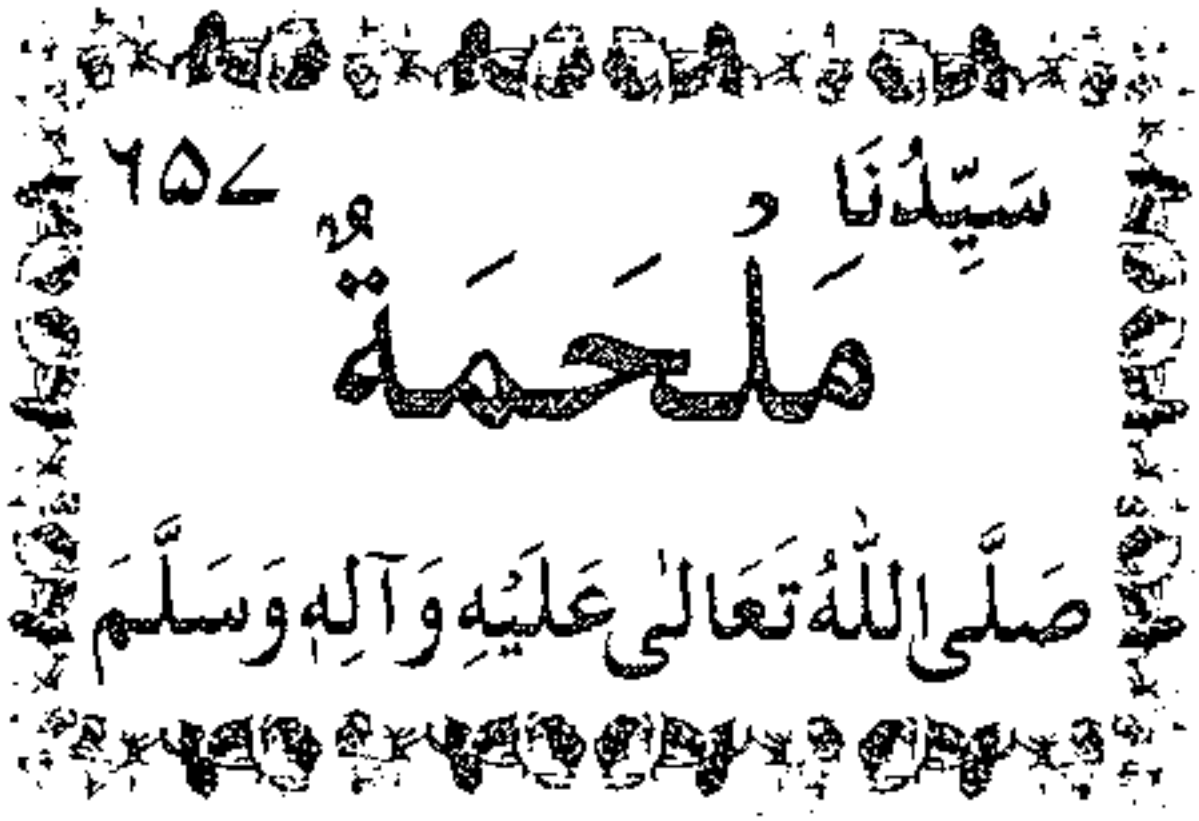 سَيِّدُنَا ۶۵۷
مَلْحَمَةٌ
صَلَّى اللّٰهُ تَعَالٰى عَلَيْهِ وَآلِهٖ وَسَلَّمَ